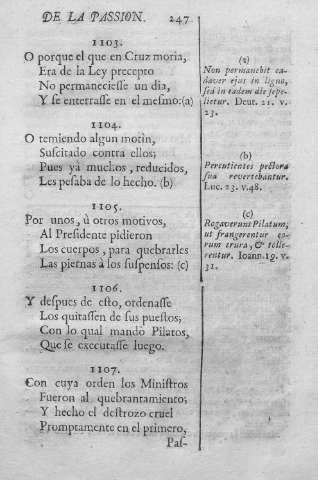 DE LA PASSION. 247
1103.
O porque el que en Cruz moria,
Era de la Ley precepto
No permaneciesse un dia,
Y se enterrasse en el mesmo: (a)
1104.
O temiendo algun motin,
Suscitado contra ellos;
Pues yá muchos, reducidos,
Les pesaba de lo hecho. (b)
1105.
Por unos, ù otros motivos,
Al Presidente pidieron
Los cuerpos, para quebrarles
Las piernas à los suspensos: (c)
1106.
Y despues de esto, ordenasse
Los quitassen de sus puestos;
Con lo qual mandò Pilatos,
Que se executasse luego.
1107.
Con cuya orden los Ministros
Fueron al quebrantamiento;
Y hecho el destrozo cruel
Promptamente en el primero,
Pas-
(a)
Non permanebit ca-
daver ejus in ligno,
sed in eadem die sepe-
lietur. Deut. 21. v.
23.
(b)
Percutientes pectora
sua revertebantur.
Luc. 23. v. 48.
(c)
Rogaverunt Pilatum,
ut frangerentur eo-
rum crura, & tolle-
rentur. Ioann. 19. v.
31.